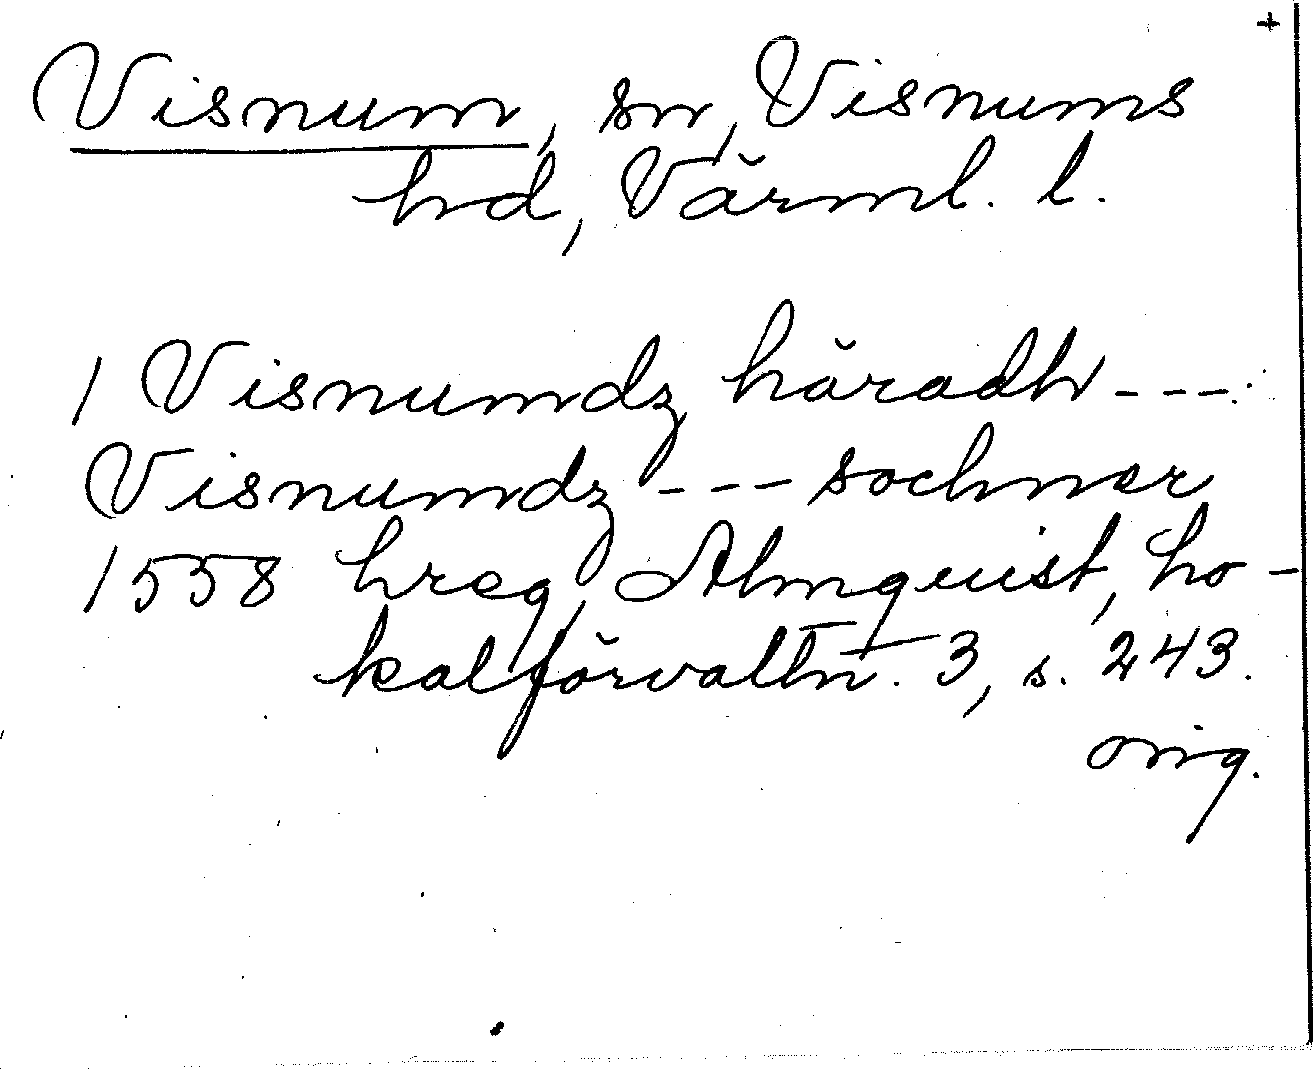 +
Visnum, sn, Visnums
hd, Värml. l.
/ Visnumdz häradh ---.
Visnumdz --- sochner
1558 hreg, Almquist, Lo-
kalförvaltn. 3, s. 243.
orig.